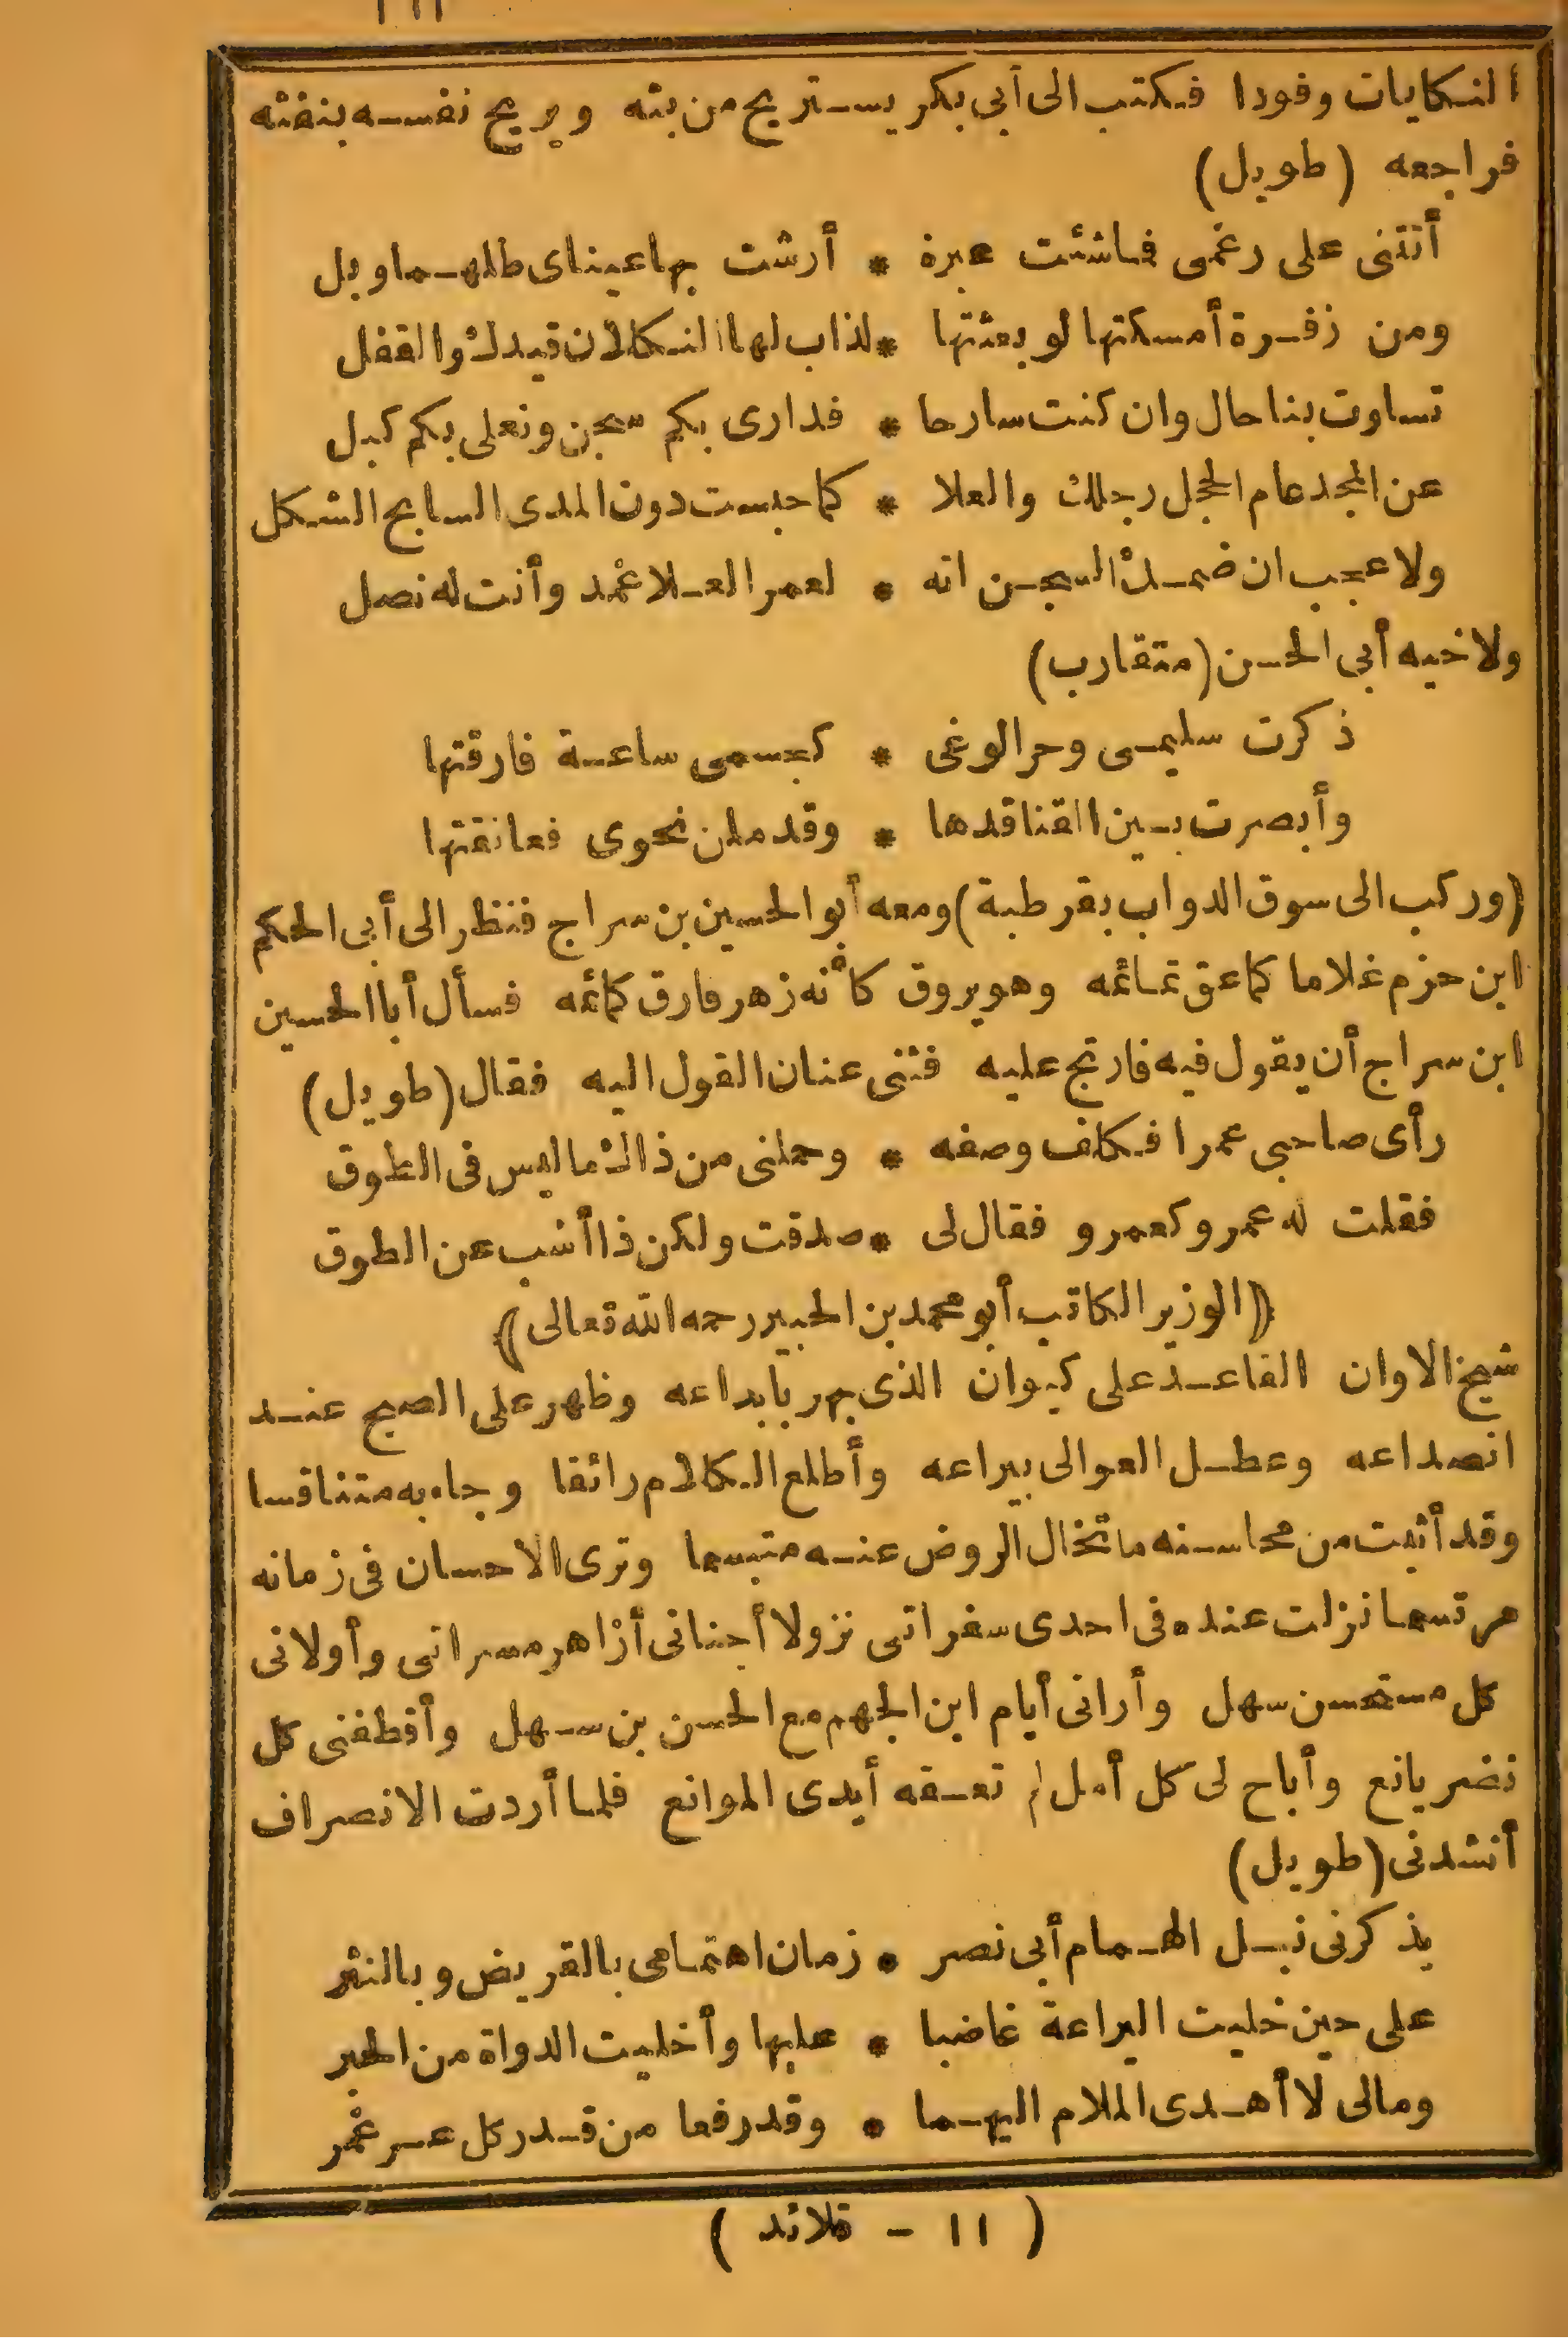 النكايات وفودا فكتب الى أبى بكر يستريح من بثه ويريح نفسه بنفثه
فراجعه (طويل)
أتتنى على رغمى فماشئت عبرة * أرشت بهاعيناى طلهما وبل
ومن زفرة أمسكتها لو بعثتها * لذاب لها النكلان قيدك والقفل
تساوت بنا حال وان كنت سارحا * فدارى بكم سجن ونعلى بكم كبل
عن المجد عام الحجل رجلك والعلا * كما حبست دون المدى السابح الشكل
ولا عجب ان ضمك السجن انه * لعمر العلا غمد وأنت له نصل
ولاخيه أبى الحسن (متقارب)
ذكرت سليمى وحر الوغى * كجسمى ساعة فارقتها
وأبصرت بين القنا قدها * وقد ملن نحوى فعانقتها
(وركب الى سوق الدواب بقرطبة) ومعه أبو الحسين بن سراج فنظر الى أبى الحكم
ابن حزم غلاما كما عق تمائمه وهو يروق كأنه زهر فارق كمائمه فسأل أبا الحسين
ابن سراج أن يقول فيه فارتج عليه فثنى عنان القول اليه فقال (طويل)
رأى صاحبى عمرا فكلف وصفه * وحملنى من ذاك ما ليس فى الطوق
فقلت له عمرو كعمرو فقال لى * صدقت ولكن ذا أشب عن الطوق
﴿الوزير الكاتب أبو محمد بن الجبير رحمه الله تعالى﴾
شيخ الاوان القاعد على كيوان الذى بهر بابداعه وظهر على الصبح عند
انصداعه وعطل العوالى بيراعه وأطلع الكلام رائقا وجاء به متناقسا
وقد أثبت من محاسنه ما تخال الروض عنه متبسما وترى الاحسان فى زمانه
مرتسما نزلت عنده فى احدى سفراتى نزولا أجنانى أزاهر مسراتى وأولانى
كل مستحسن سهل وأرانى أيام ابن الجهم مع الحسن بن سهل وأقطفنى كل
نضر يانع وأباح لى كل أمل لم تعقه أيدى الموانع فلما أردت الانصراف
أنشدنى (طويل)
يذكرنى نبل الهمام أبى نصر * زمان اهتمامى بالقريض وبالنثر
على حين خليت اليراعة غاضبا * عليها وأخليت الدواة من الحبر
ومالى لا أهدى الملام اليهما * وقد رفعا من قدر كل عسر غمر
( ١١ - قلائد )